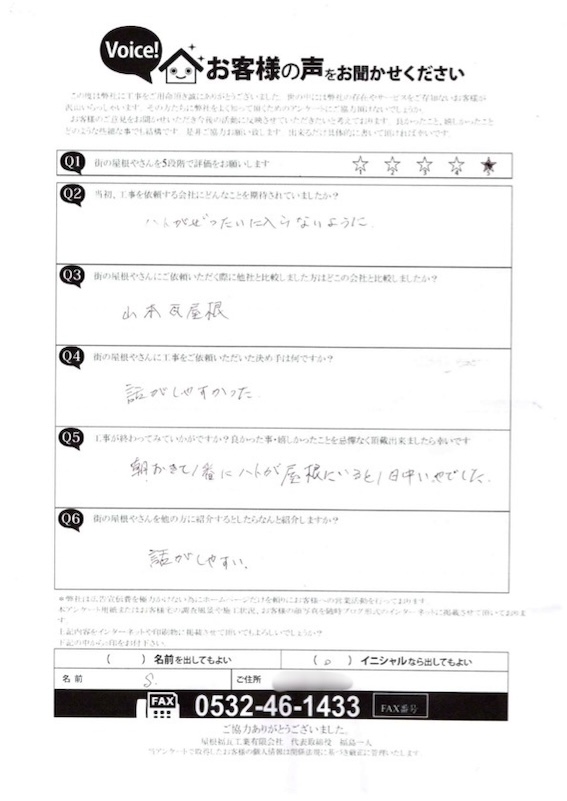 Voice!
お客様の声をお聞かせください
この度は弊社に工事をご用命頂き誠にありがとうございました。世の中には弊社の存在やサービスをご存知ないお客様が
沢山いらっしゃいます。その方たちに弊社をよく知って頂くためのアンケートにご協力頂けないでしょうか。
お客様のご意見をお聞かせいただき今後の活動に反映させていただきたいと考えております。良かったこと、嬉しかったこと
どのような些細な事でも結構です。是非ご協力お願い致します。出来るだけ具体的に書いて頂ければ幸いです。
Q1 街の屋根やさんを5段階で評価をお願いします ☆ ☆ ☆ ☆ ★
Q2 当初、工事を依頼する会社にどんなことを期待されていましたか？
ハトがぜったいに入らないように。
Q3 街の屋根やさんにご依頼いただく際に他社と比較しました方はどこの会社と比較しましたか？
山本瓦屋根
Q4 街の屋根やさんに工事をご依頼いただいた決め手は何ですか？
話がしやすかった
Q5 工事が終わってみていかがですか？良かった事・嬉しかったことを忌憚なく頂戴出来ましたら幸いです
朝おきて1番にハトが屋根にいると1日中いやでした.
Q6 街の屋根やさんを他の方に紹介するとしたらなんと紹介しますか？
話がしやすい.
＊弊社は広告宣伝費を極力かけない為にホームページだけを頼りにお客様への営業活動を行っております。
本アンケート用紙またはお客様宅の調査風景や施工状況、お客様の顔写真を随時ブログ形式のインターネットに掲載させて頂いておりま
す。
上記内容をインターネットや印刷物に掲載させて頂いてもよろしいでしょうか？
下記の中から○印をお付け下さい。
（　）名前を出してもよい （○）イニシャルなら出してもよい
名前 S. ご住所
FAX 0532-46-1433 FAX番号
ご協力ありがとうございました。
屋根福五工業有限会社 代表取締役 福島一人
当アンケートで取得したお客様の個人情報は関係法規に基づき厳正に管理いたします